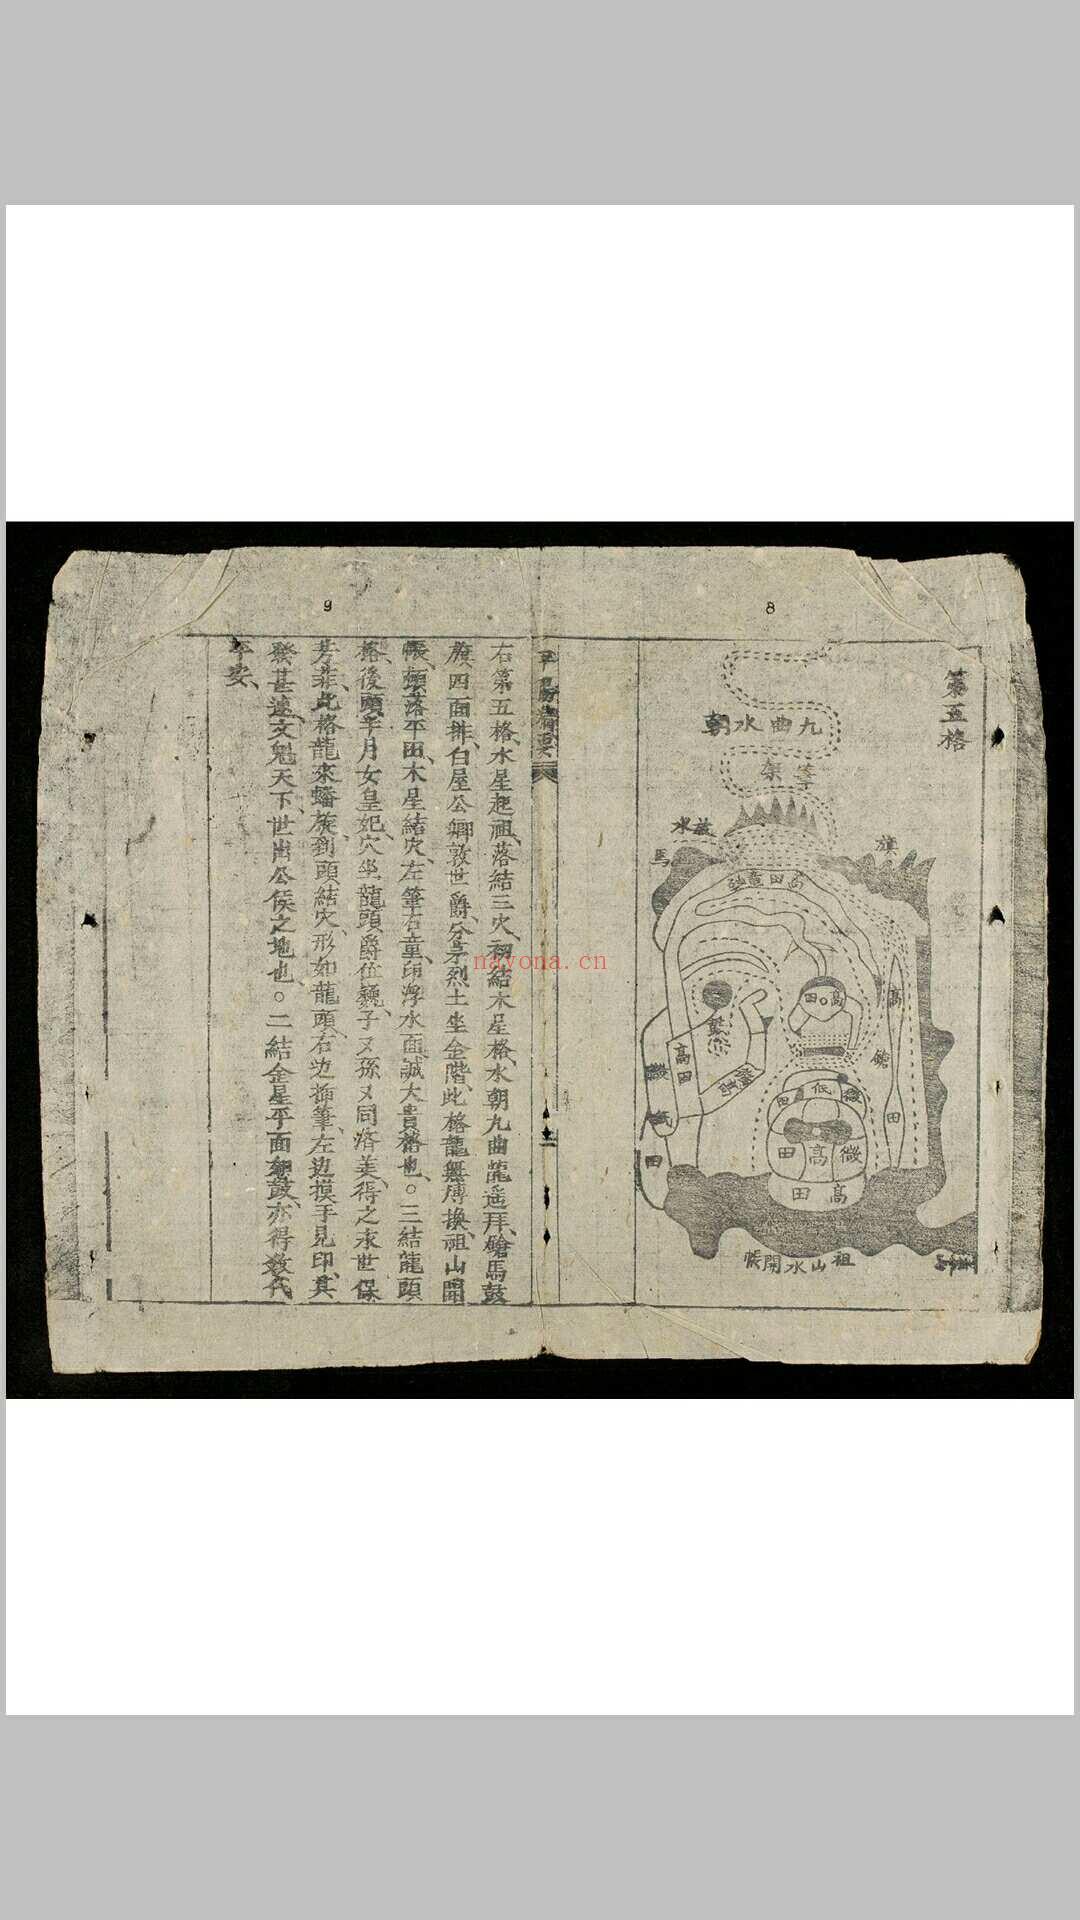 9
8
第五格
九曲水朝
旗
馬
高田
高
田
微低田
微高田
高田
微低田
祖山水開帳
nayona.cn
右第五格水星起祖、落結三穴、初結木星格、水朝九曲龍遥拜、鎗馬鼓
旗四面排、白屋公卿敦世爵、分茅烈土坐金階、此格龍無博換、祖山開
帳、頓落平田、木星結穴、左筆右童、印浮水面、誠大貴格也。三結龍頭
格後頭半月女皇妃、穴坐龍頭爵位巍、子又孫又同落美、得之永世保
芳菲、此格龍來蟠旋到頭結穴、形如龍頭、右边插筆、左边摸手見印、其
發甚速、文魁天下、世出公侯之地也。二結金星平面如鼓、亦得数代
平安、